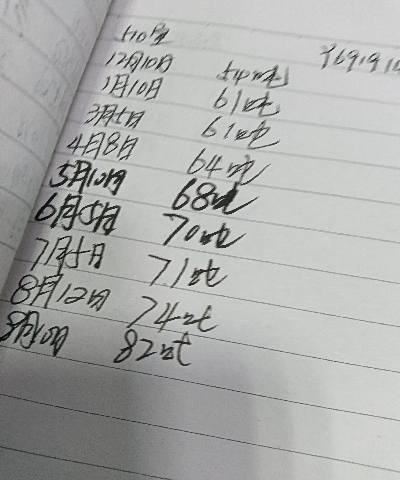 12月10日 54吨
1月10日 61吨
3月5日 61吨
4月8日 64吨
5月10日 68吨
6月5日 70吨
7月5日 71吨
8月12日 74吨
9月10日 82吨